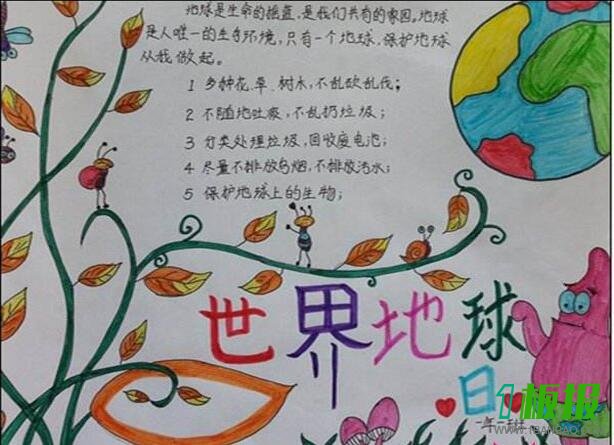 地球是生命的摇篮,是我们共有的家园。地球
是人唯一的生存环境,只有一个地球,保护地球
从我做起。
1 多种花、草、树木,不乱砍乱伐;
2 不随地吐痰,不乱扔垃圾;
3 分类处理垃圾,回收废电池;
4 尽量不排放乌烟,不排放污水;
5 保护地球上的生物;
世界地球
日
一年一班
1板报
www.1BANBAO.COM